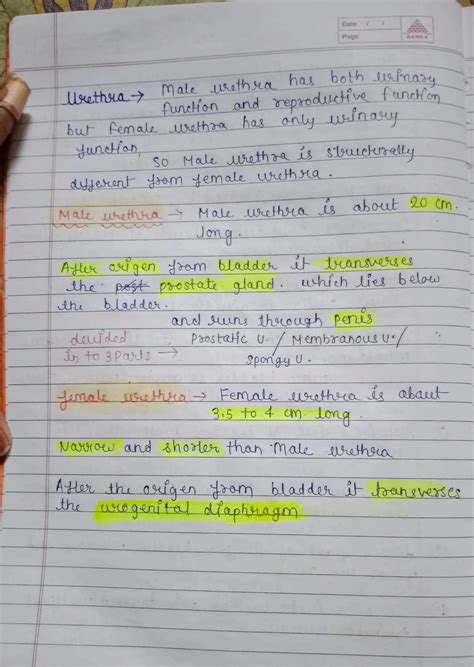 Date : / /
Page
SANKA
Urethra → Male urethra has both urinary
function and reproductive function
but female urethra has only urinary
function,
so Male urethra is structurally
different from female urethra.
Male urethra → Male urethra is about 20 cm.
long.
After origen from bladder it transverses
the post prostate gland. which lies below
the bladder.
and runs through penis
decided
in to 3 parts → Prostatic U. / Membranous U. /
spongy U.
female urethra → Female urethra is about
3.5 to 4 cm long.
Narrow and shorter than Male urethra
After the origen from bladder it transverses
the urogenital diaphragm